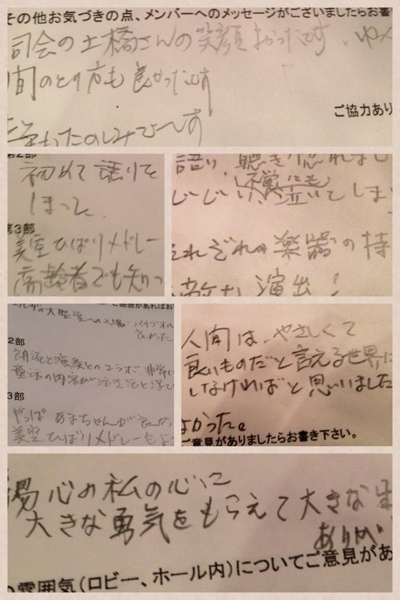 その他お気づきの点、メンバーへのメッセージがございましたらお書
司会の土橋さんの笑顔よかったです。ゆっ
間のとり方も良かったです
ご協力あり
たのしみで〜す
第2部
初めて語りを
しまった
第3部
美空ひばりメドレー
高齢者でも知っ
語り、聴き惚れまし
(不覚にも)
じじい、泣いてしま
それぞれの楽器の持
演出!
2部
朗読と演奏とのコラボ
3部
やっぱ あまちゃんが
美空ひばりメドレーもよ
人間は、やさしくて
良いものだと言える世界に
しなければと思いました
よかった。
ご意見がありましたらお書き下さい。
心の私の心に
大きな勇気をもらえて大きな
ありがい
の雰囲気(ロビー、ホール内)についてご意見があ